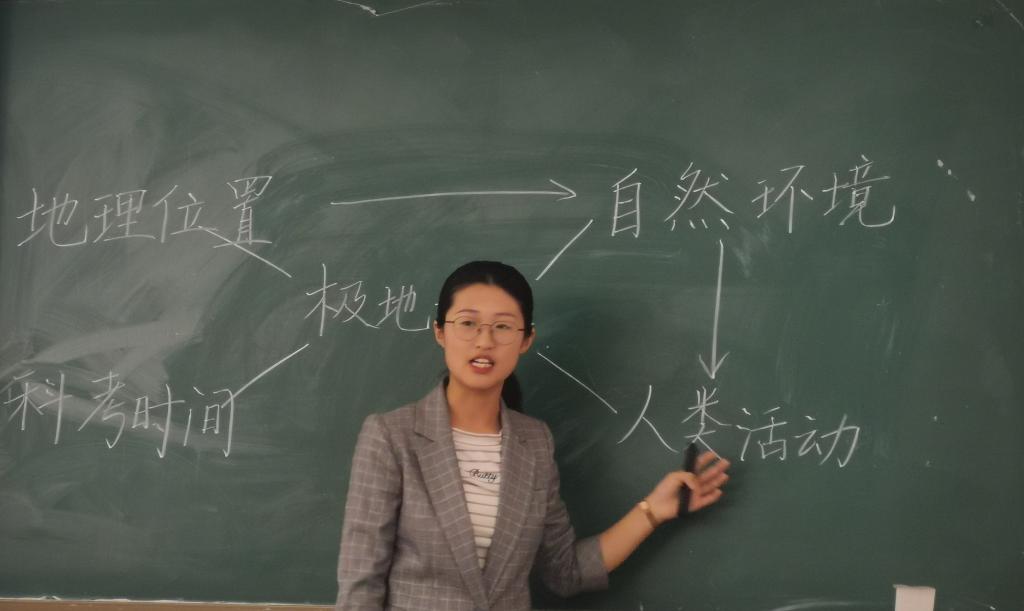 地理位置
自然环境
极地
科考时间
人类活动